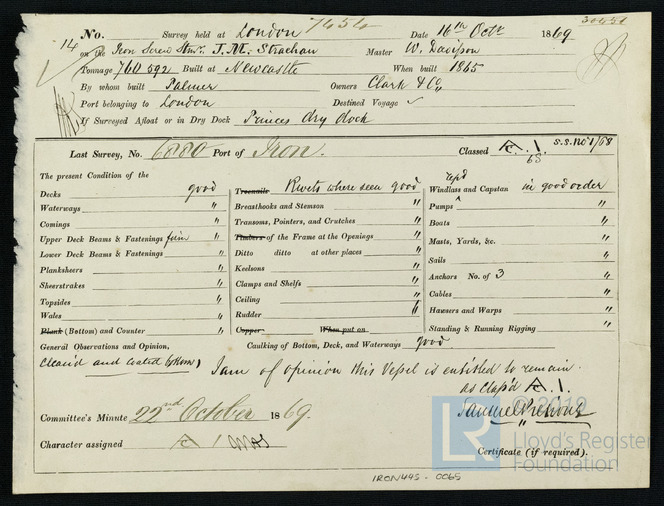 7454 30451
No. Survey held at London Date 16th Octr 1869
14 on the Iron Screw Stmr. J.M. Strachan Master W. Davison
Tonnage 760 592 Built at Newcastle When built 1865
By whom built Palmer Owners Clark & Co
Port belonging to London Destined Voyage
If Surveyed Afloat or in Dry Dock Princes dry dock
Last Survey, No. 6880 Port of Iron. Classed A. 1. S.S. No 1/68
65
The present Condition of the
Decks good
Waterways "
Comings "
Upper Deck Beams & Fastenings "
Lower Deck Beams & Fastenings "
Planksheers "
Sheerstrakes "
Topsides "
Wales "
Plank (Bottom) and Counter "
General Observations and Opinion,
Treenails Rivets where seen good
Breasthooks and Stemson "
Transoms, Pointers, and Crutches "
Timbers of the Frame at the Openings "
Ditto ditto at other places "
Keelsons "
Clamps and Shelfs "
Ceiling "
Rudder "
Copper When put on
Caulking of Bottom, Deck, and Waterways good
Windlass and Capstan in good order
Pumps "
Boats "
Masts, Yards, &c. "
Sails "
Anchors No. of 3 "
Cables "
Hawsers and Warps "
Standing & Running Rigging "
Clean'd and coated bottom) I am of opinion this Vessel is entitled to remain
as Class'd A. 1.
Committee's Minute 22nd October 1869.
Character assigned A 1
Certificate (if required).
© 2019
LR
Lloyd's Register
Foundation
IRON495 - 0065